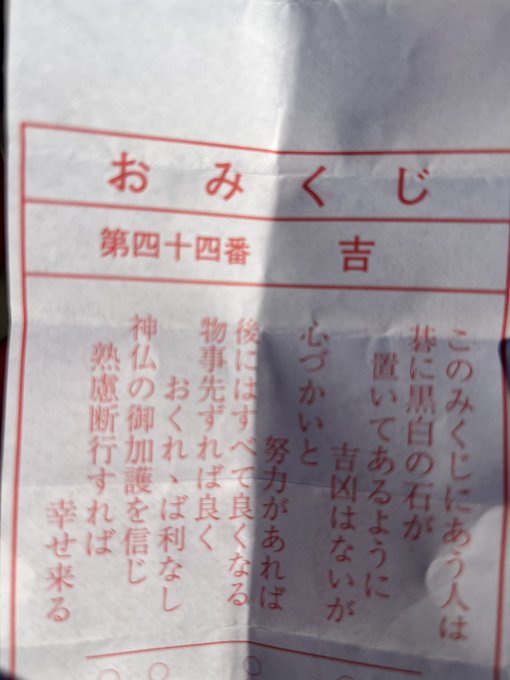 おみくじ
第四十四番 吉
このみくじにあう人は
碁に黒白の石が
置いてあるように
吉凶はないが
心づかいと
努力があれば
後にはすべて良くなる
物事先ずれば良く
おくれゝば利なし
神仏の御加護を信じ
熟慮断行すれば
幸せ来る